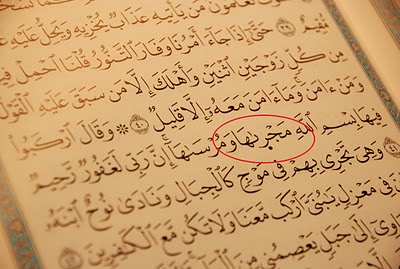 تَعْلَمُونَ مَن يَأْتِيهِ عَذَابٌ يُخْزِيهِ وَيَحِلُّ عَلَيْهِ
مُّقِيمٌ ٣٩ حَتَّىٰٓ إِذَا جَآءَ أَمْرُنَا وَفَارَ ٱلتَّنُّورُ قُلْنَا ٱحْمِلْ
مِن كُلٍّ زَوْجَيْنِ ٱثْنَيْنِ وَأَهْلَكَ إِلَّا مَن سَبَقَ عَلَيْهِ ٱلْقَوْلُ
وَمَنْ ءَامَنَ ۚ وَمَآ ءَامَنَ مَعَهُۥٓ إِلَّا قَلِيلٌ ٤٠ ۞ وَقَالَ ٱرْكَبُوا۟
فِيهَا بِسْمِ ٱللَّهِ مَجْر۪ىٰهَا وَمُرْسَىٰهَآ ۚ إِنَّ رَبِّى لَغَفُورٌ رَّحِيمٌ
٤١ وَهِىَ تَجْرِى بِهِمْ فِى مَوْجٍ كَٱلْجِبَالِ وَنَادَىٰ نُوحٌ ٱبْنَهُۥ
فِى مَعْزِلٍ يَٰبُنَىَّ ٱرْكَب مَّعَنَا وَلَا تَكُن مَّعَ ٱلْكَٰفِرِينَ
إِلَىٰ جَبَلٍ يَعْصِمُنِى مِنَ